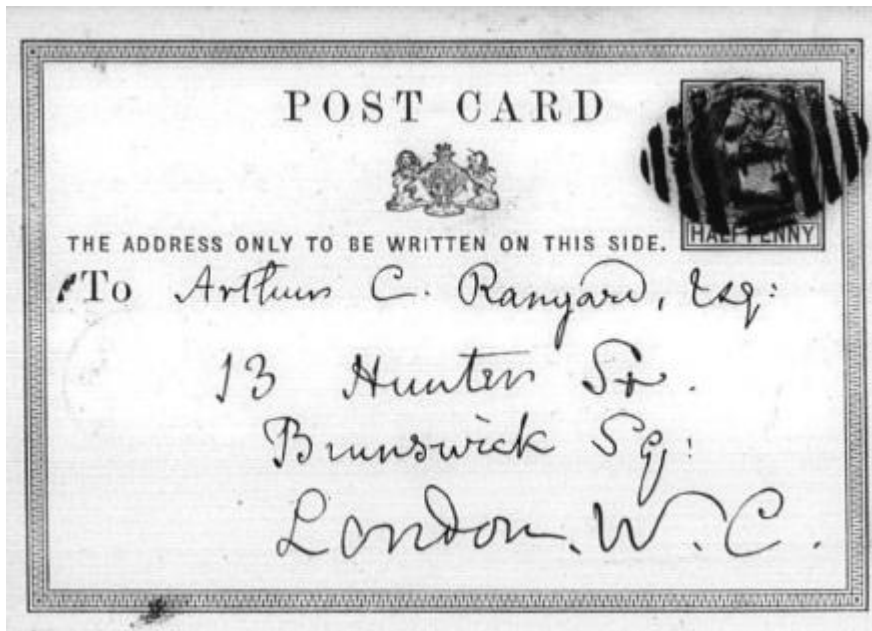 POST CARD
HALFPENNY
THE ADDRESS ONLY TO BE WRITTEN ON THIS SIDE.
To Arthur C. Ranyard, Esq:
13 Hunter St.
Brunswick Sq:
London. W. C.